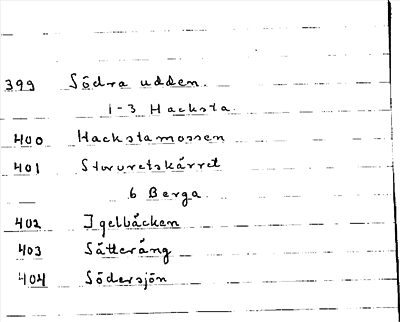 399 Södra udden.
1-3 Hacksta.
400 Hackstamossen
401 Storuretskärret
6 Berga
402 Igelbäcken
403 Sätteräng
404 Södersjön